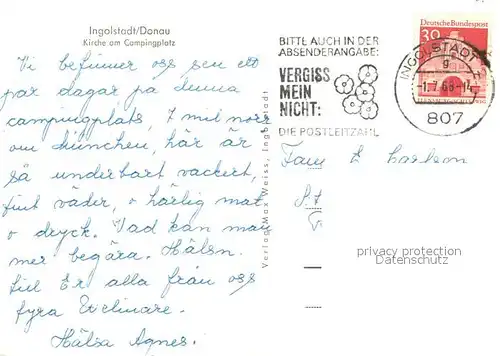 Ingolstadt/Donau
Kirche am Campingplatz
Vi befinner oss sen ett
par dagar på denna
campingplats, 7 mil norr
om München, här är
så underbart vackert,
fint väder, o härlig mat
o dryck. Vad kan man
mer begära. Hälsn.
till Er alla från oss
fyra
Hälsa Agnes.
Verlag Max Weiss, Ingolstadt
BITTE AUCH IN DER
ABSENDERANGABE:
VERGISS
MEIN
NICHT:
DIE POSTLEITZAHL
30
Deutsche Bundespost
INGOLSTADT
g
-1.7.68-14
807
Fam
privacy protection
Datenschutz